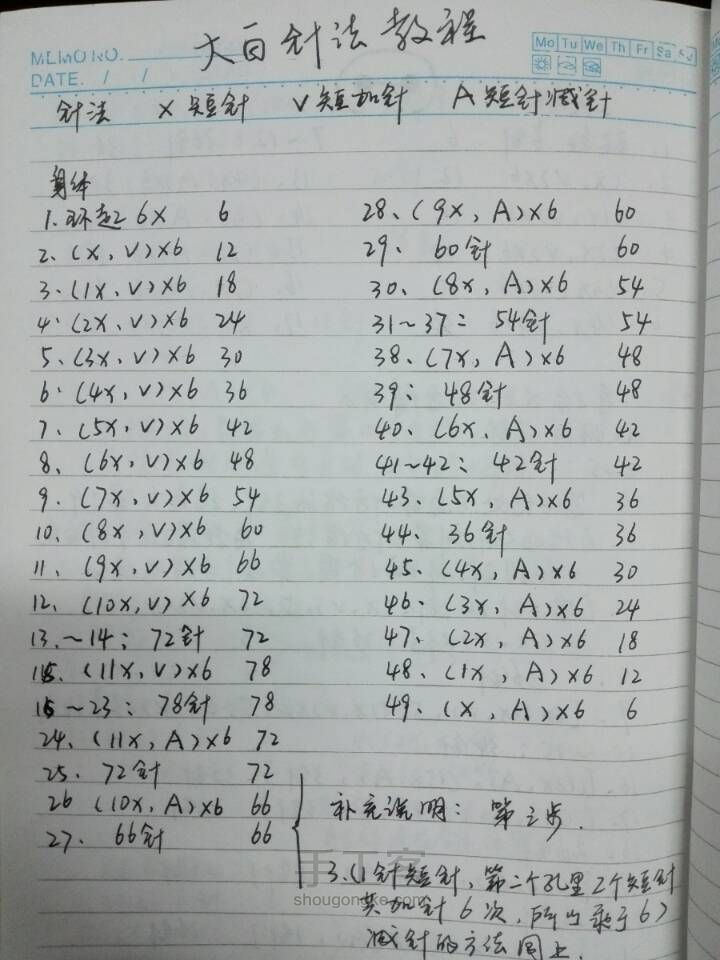 MEMO NO.
DATE. / /
Mo Tu We Th Fr Sa
大白针法教程
针法 X 短针 V 短加针 A 短针减针
身体
1. 环起 6X 6
2. (X, V)×6 12
3. (1X, V)×6 18
4. (2X, V)×6 24
5. (3X, V)×6 30
6. (4X, V)×6 36
7. (5X, V)×6 42
8. (6X, V)×6 48
9. (7X, V)×6 54
10. (8X, V)×6 60
11. (9X, V)×6 66
12. (10X, V)×6 72
13.~14: 72针 72
15. (11X, V)×6 78
16~23: 78针 78
24. (11X, A)×6 72
25. 72针 72
26 (10X, A)×6 66
27. 66针 66
28、(9X, A)×6 60
29、 60针 60
30、 (8X, A)×6 54
31~37: 54针 54
38、(7X, A)×6 48
39: 48针 48
40、(6X, A)×6 42
41~42: 42针 42
43、(5X, A)×6 36
44、 36针 36
45、(4X, A)×6 30
46、(3X, A)×6 24
47、(2X, A)×6 18
48、(1X, A)×6 12
49、(X, A)×6 6
补充说明: 第三步.
3.(1针短针, 第二个孔里2个短针
共加针6次, 所以乘于6)
减针的方法同上.
手工客
shougongke.com